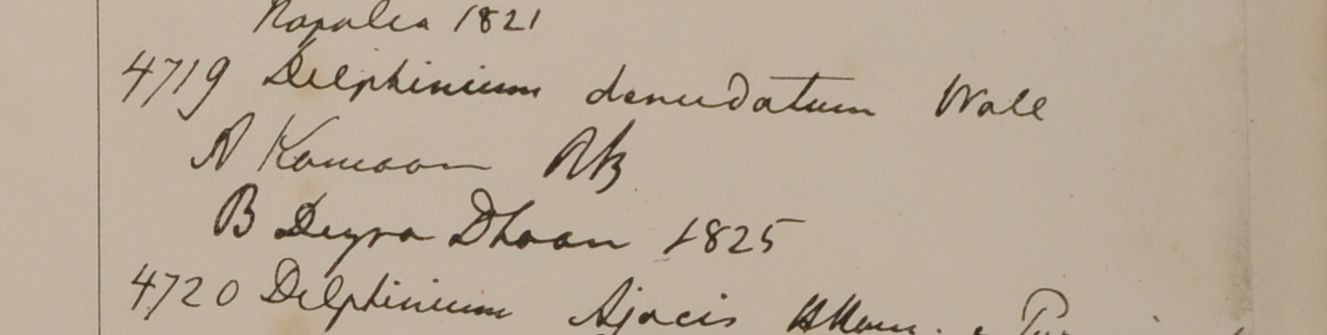 Napalia 1821
4719 Delphinium denudatum Wall
A Kamaon RB
B Deyra Dhoon 1825
4720 Delphinium Ajacis